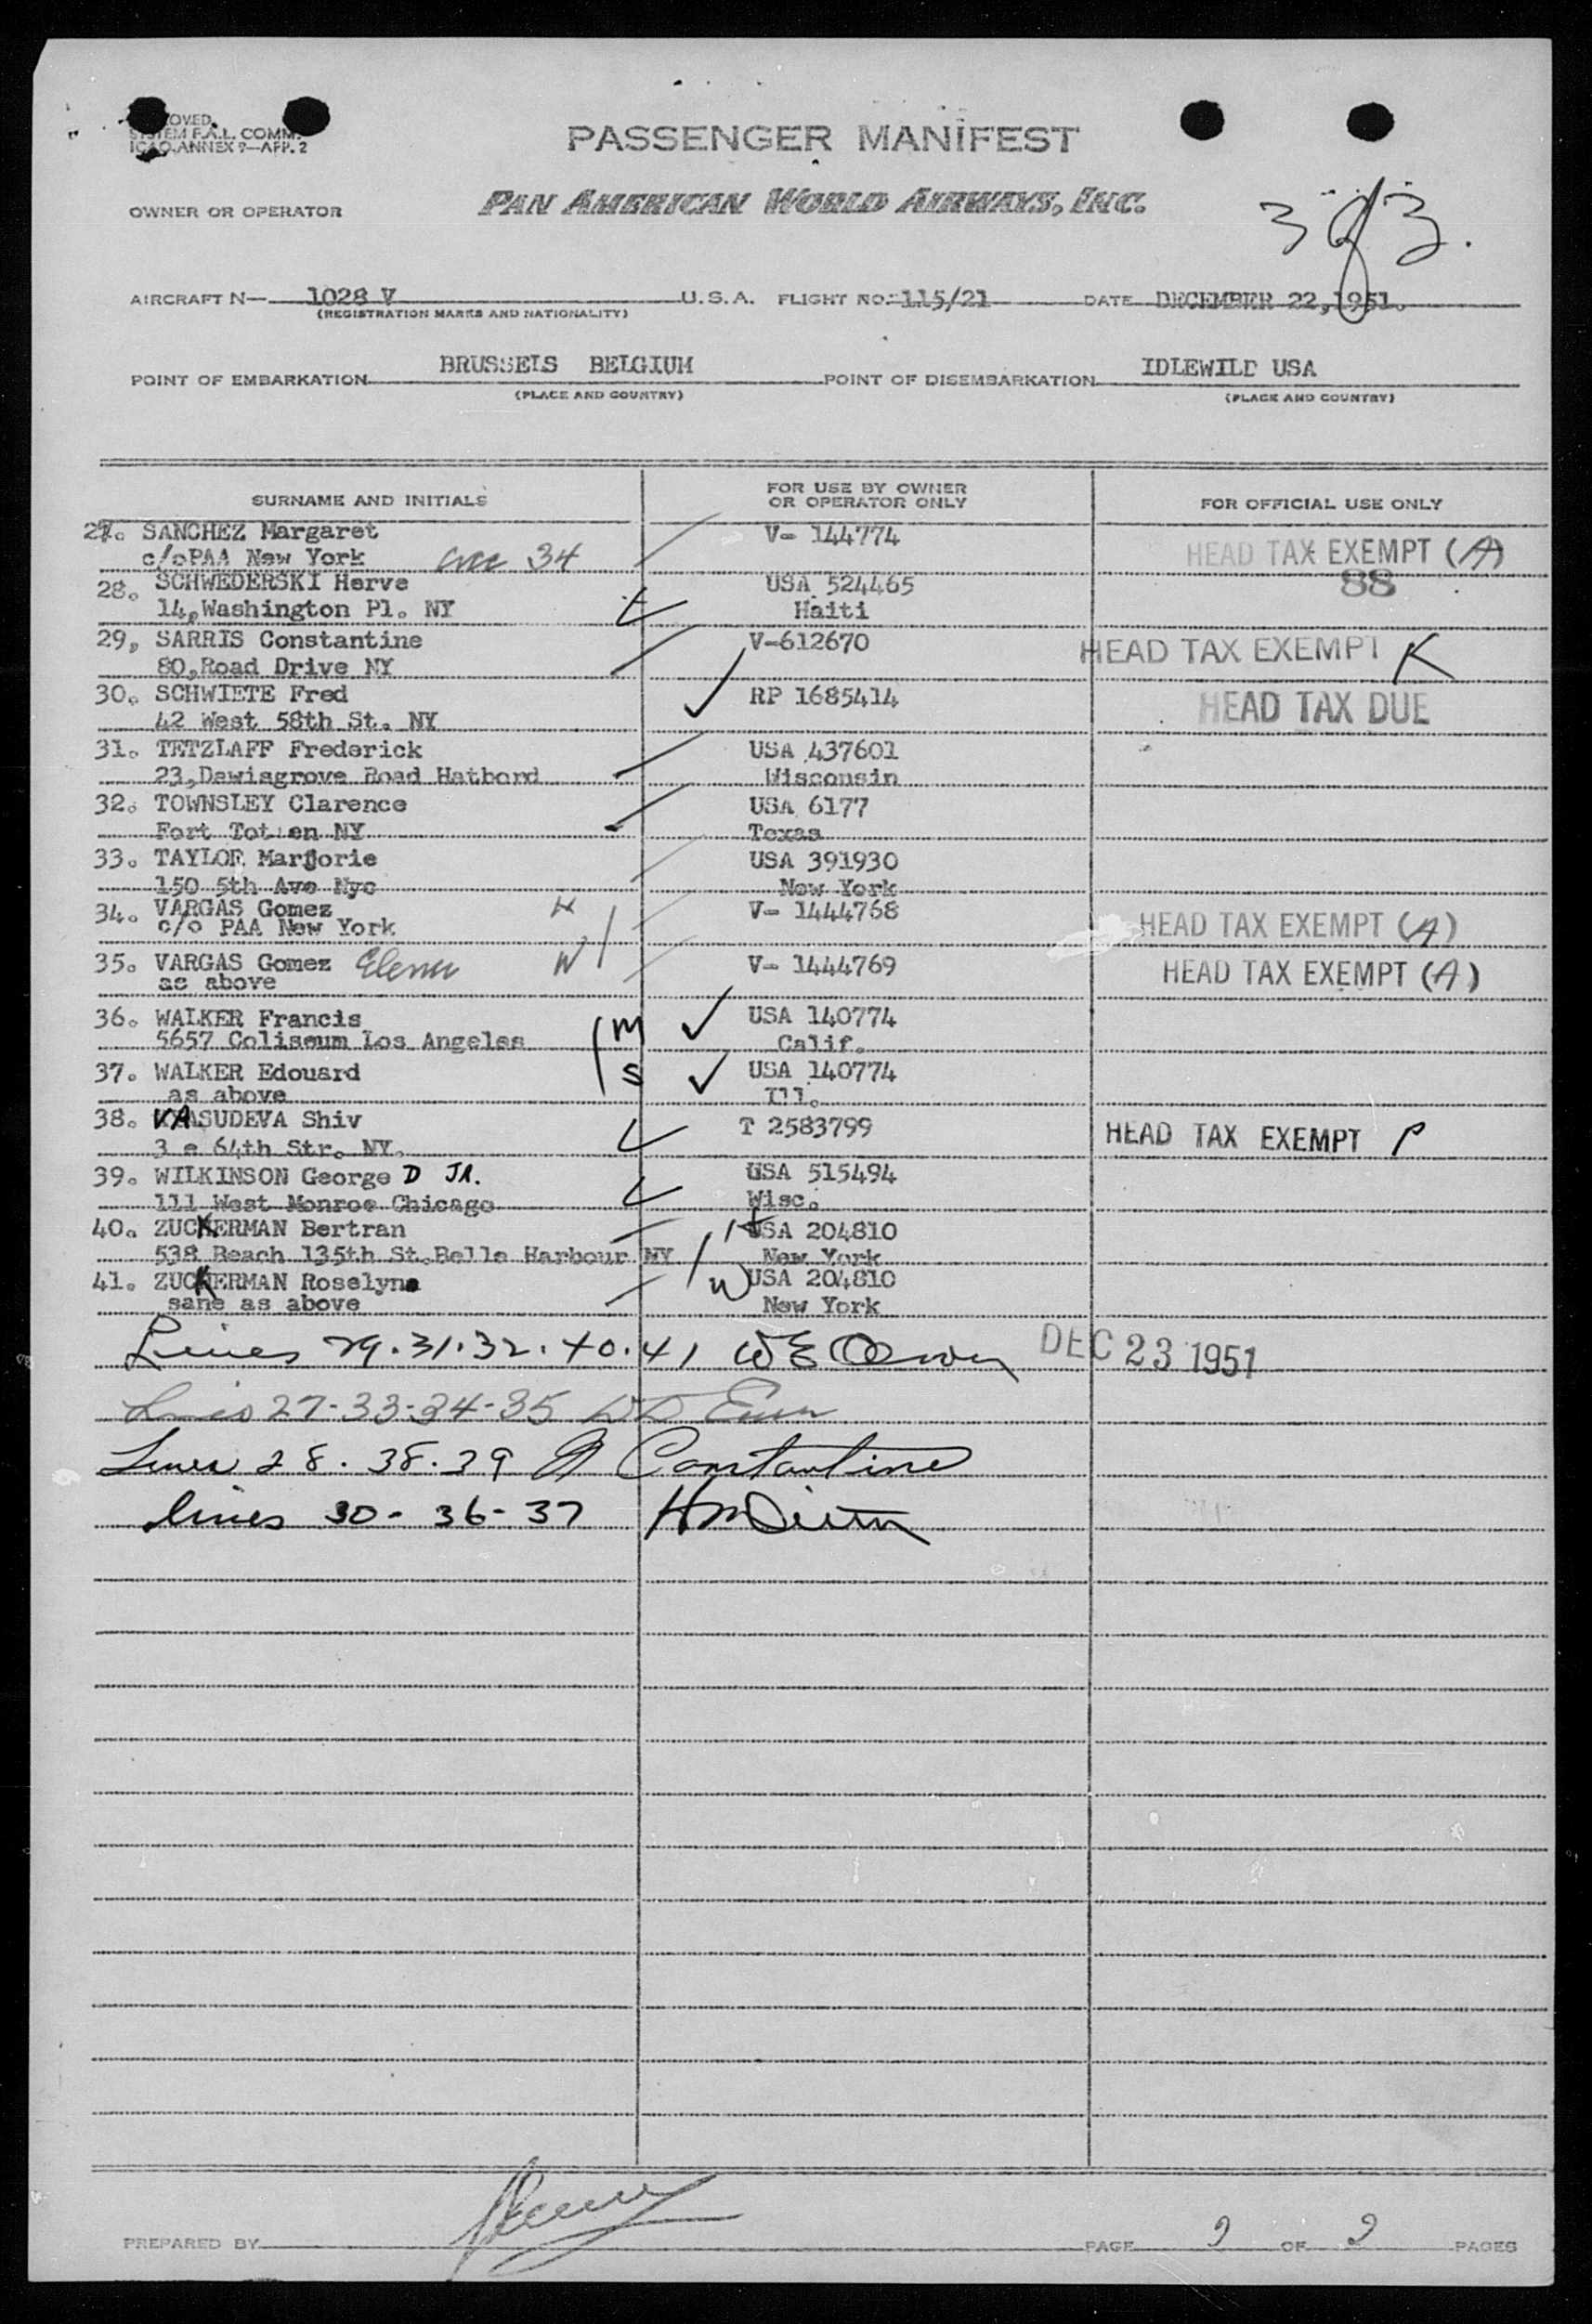 PASSENGER MANIFEST
SYSTEM F.A.L. COMM.
ICAO ANNEX 9—APP. 2
OWNER OR OPERATOR PAN AMERICAN WORLD AIRWAYS, INC.
3 of 3.
AIRCRAFT N— 1028 V U.S.A. FLIGHT NO. 115/21 DATE DECEMBER 22, 1951.
(REGISTRATION MARKS AND NATIONALITY)
POINT OF EMBARKATION BRUSSELS BELGIUM POINT OF DISEMBARKATION IDLEWILD USA
(PLACE AND COUNTRY) (PLACE AND COUNTRY)
SURNAME AND INITIALS FOR USE BY OWNER OR OPERATOR ONLY FOR OFFICIAL USE ONLY
27. SANCHEZ Margaret V- 144774
c/oPAA New York 34 HEAD TAX EXEMPT (A)
28. SCHWEDERSKI Herve USA 524465 88
14, Washington Pl. NY Haiti
29, SARRIS Constantine V-612670 HEAD TAX EXEMPT K
80,Road Drive NY
30. SCHWIETE Fred RP 1685414 HEAD TAX DUE
42 West 58th St. NY
31. TETZLAFF Frederick USA 437601
23,Dawisgrove Road Hatbord Wisconsin
32. TOWNSLEY Clarence USA 6177
Fort Totten NY Texas
33. TAYLOR Marjorie USA 391930
150 5th Ave Nyc New York
34. VARGAS Gomez H V- 1444768
c/o PAA New York HEAD TAX EXEMPT (A)
35. VARGAS Gomez Elena W V- 1444769 HEAD TAX EXEMPT (A)
as above
36. WALKER Francis M USA 140774
5657 Coliseum Los Angeles Calif.
37. WALKER Edouard S USA 140774
as above Ill.
38. VASUDEVA Shiv T 2583799 HEAD TAX EXEMPT P
3 e 64th Str. NY.
39. WILKINSON George D JR. USA 515494
111 West Monroe Chicago Wisc.
40. ZUCKERMAN Bertran H USA 204810
538 Beach 135th St.Belle Harbour NY New York
41. ZUCKERMAN Roselyne W USA 204810
sane as above New York
Lines 29.31.32.40.41 DEC 23 1951
Lines 27-33-34-35
Lines 28.38.39 Constantine
lines 30-36-37
PREPARED BY PAGE 2 OF 2 PAGES